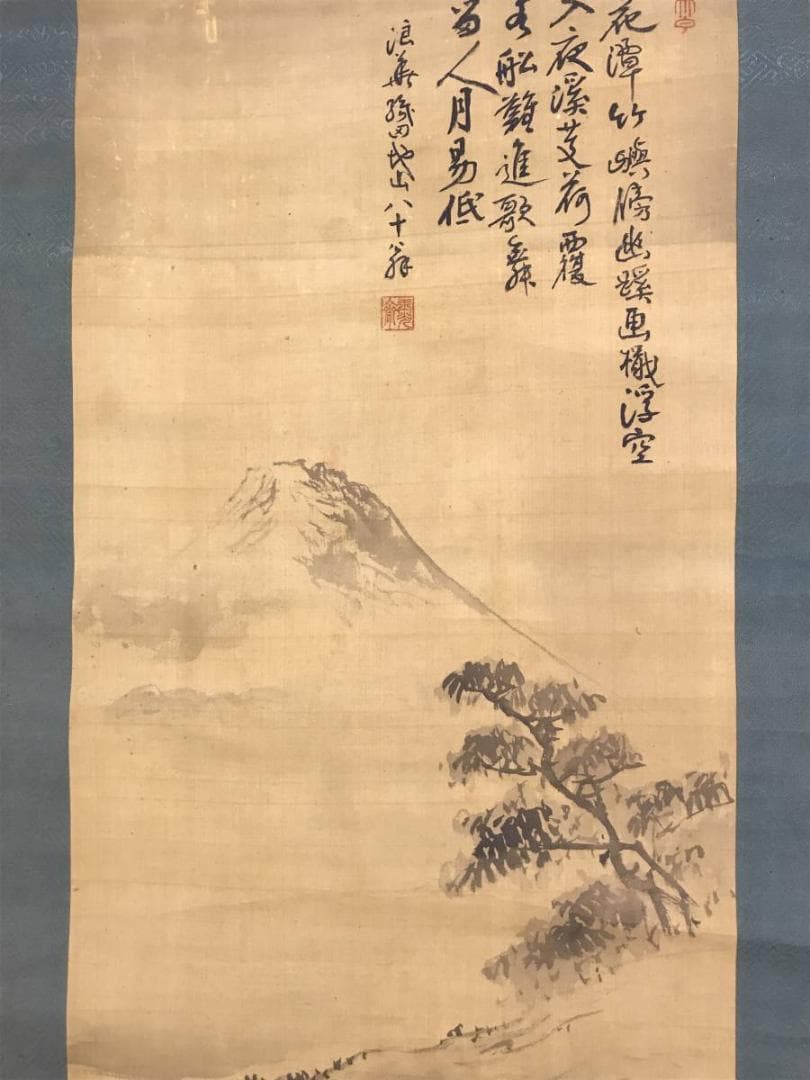 花潭竹嶼傍幽蹊画檝浮空
入夜溪芰荷覆
水舩難進歌舞
留人月易低
浪華織田地山八十翁